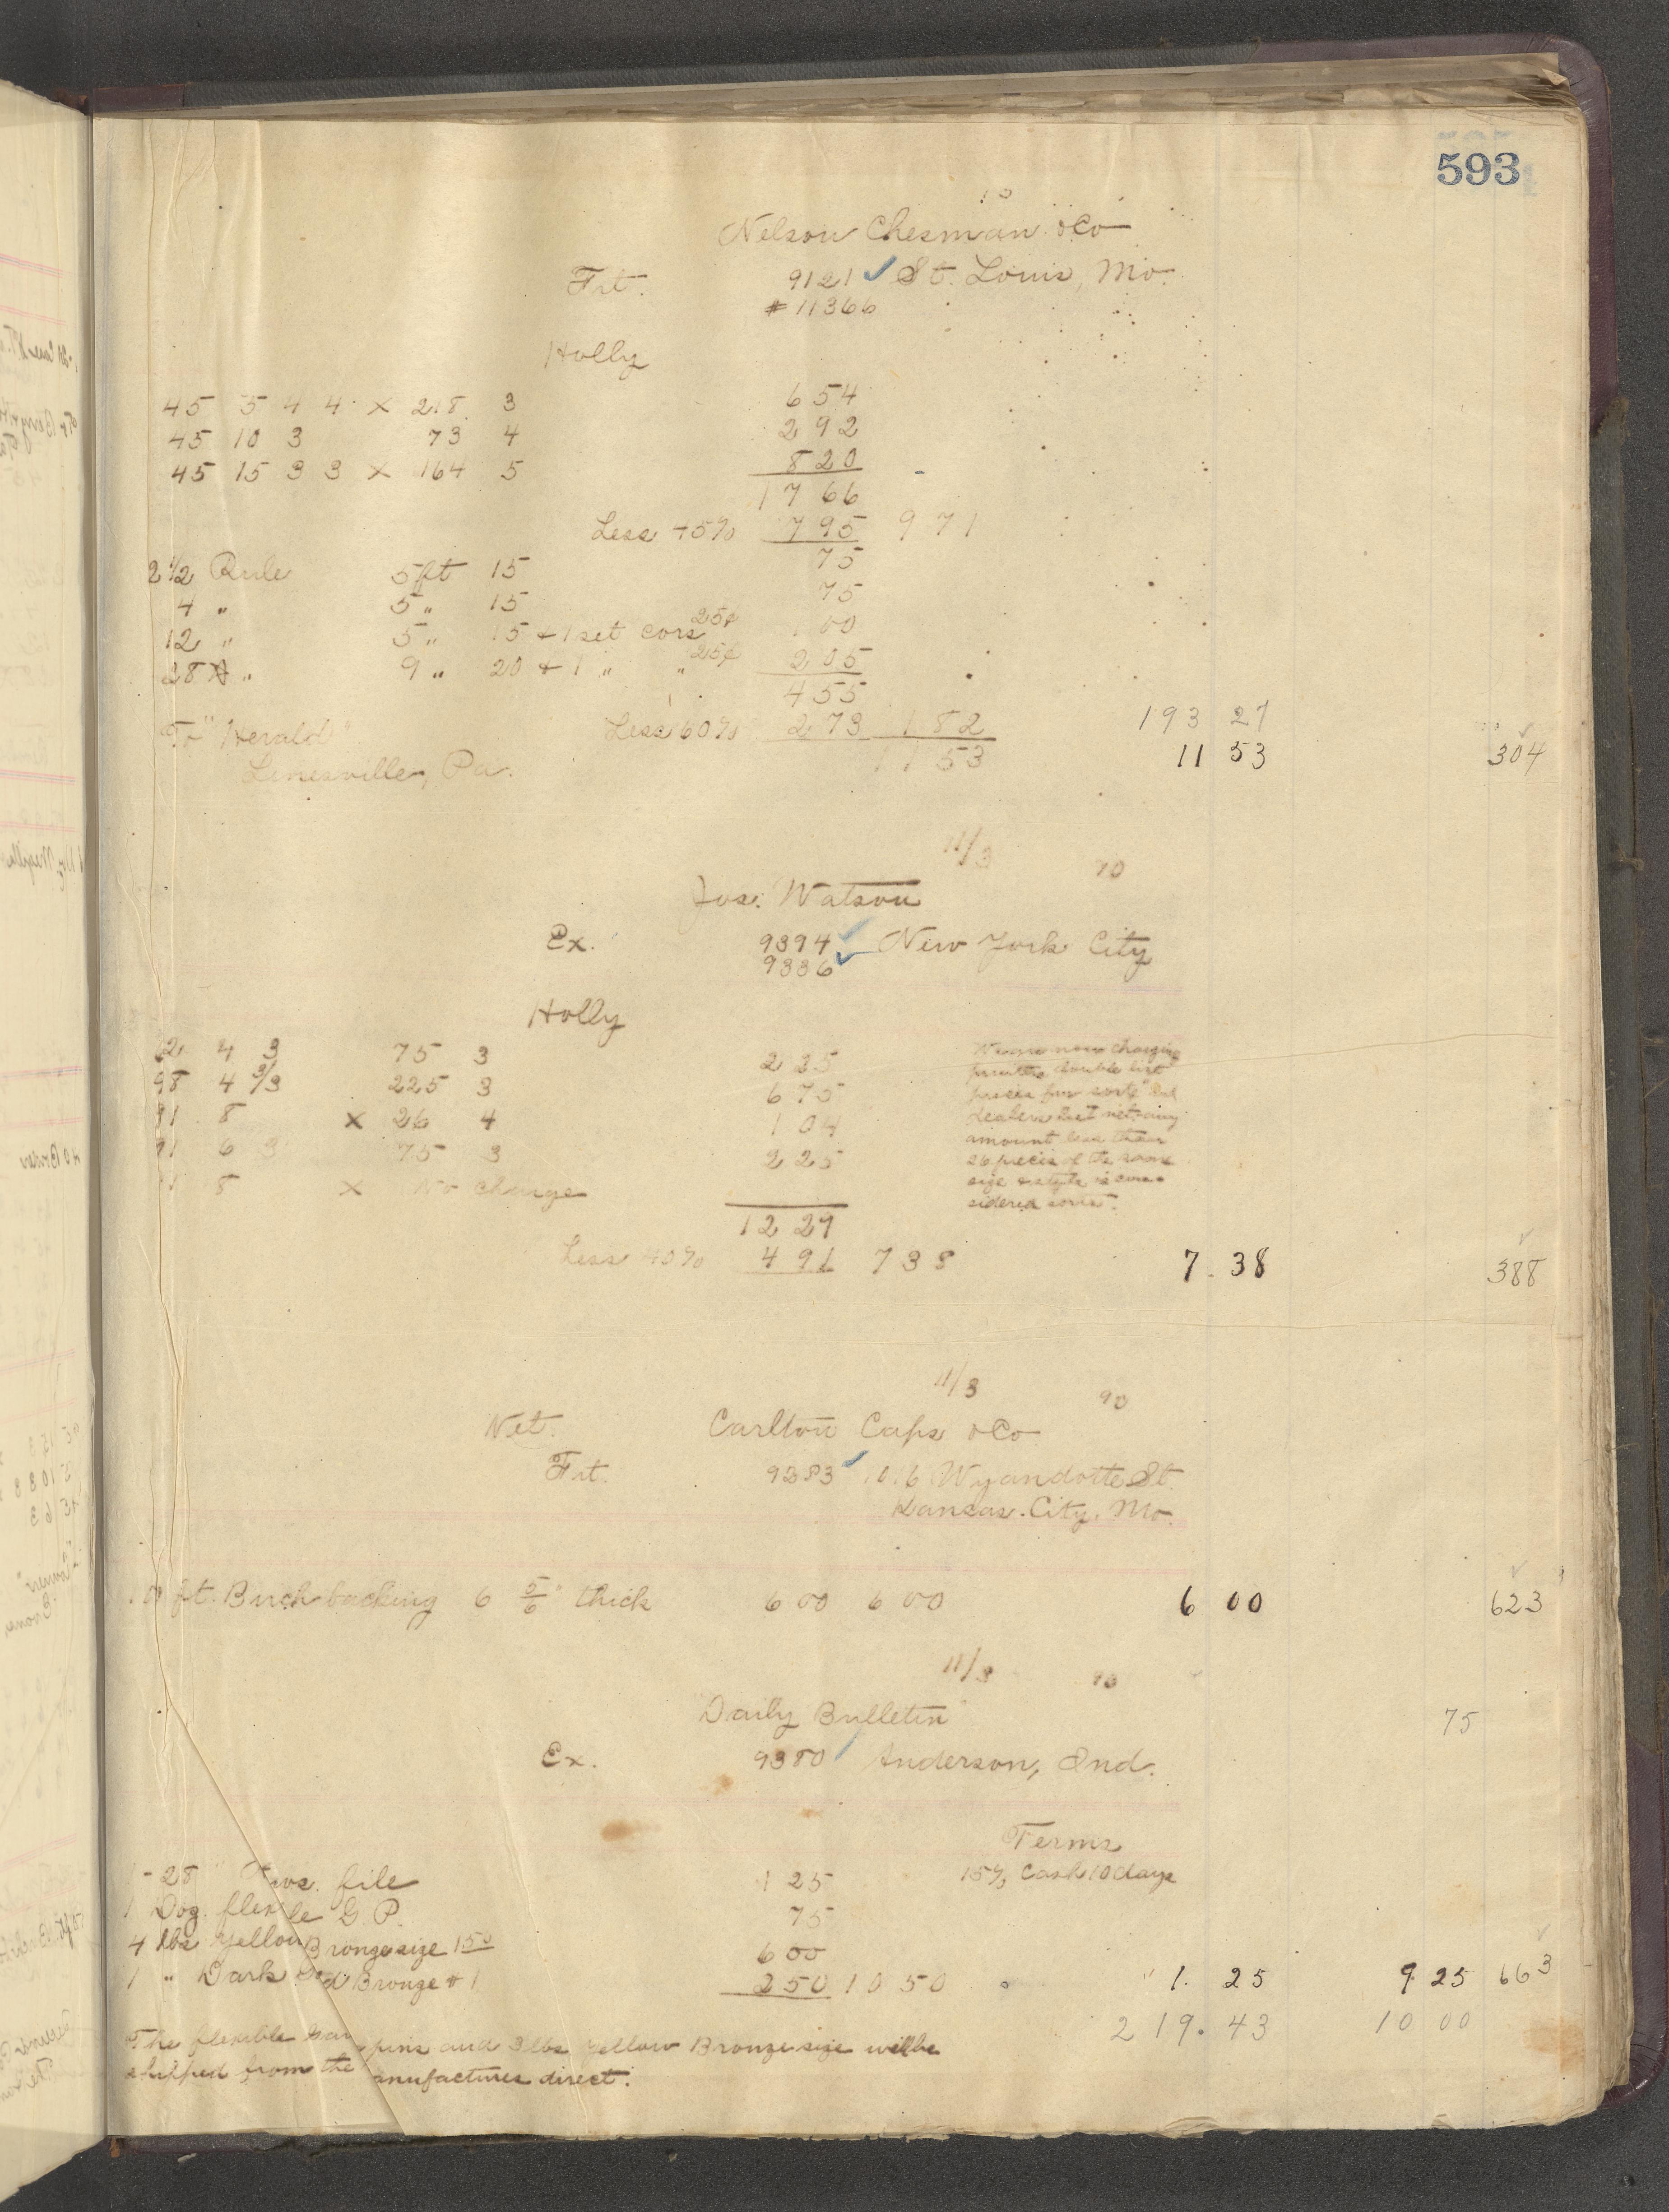 593
Nelson Chesman & Co
Frt. 9121 St. Louis, Mo.
# 11366
Holly
45 5 4 4 x 218 3 6 54
45 10 3 73 4 2 92
45 15 3 3 x 164 5 8 20
17 66
Less 45% 7 95 9 71
2 1/2 Rule 5 ft 15 75
4 " 5 " 15 75
12 " 5 " 15 + 1 set cors 25¢ 1 00
28 A " 9 " 20 + 1 " " 25¢ 2 05
4 55
To "Herald" Less 60% 2 73 1 82 193 27
Linesville, Pa. 11 53 11 53 304
11/3 90
Jos. Watson
Ex. 9394 New York City
9336
Holly
4 3 75 3 2 25
98 4 3/3 225 3 6 75
91 8 x 26 4 1 04
91 6 3 75 3 2 25
8 x No charge
We are now charging
printers double list
prices for sorts
dealers list net, any
amount less than
26 pieces of the same
size & style is con-
sidered sorts.
12 29
Less 40% 4 91 7 38 7.38 388
11/3 90
Net. Carlton Caps & Co
Frt. 9383 1016 Wyandotte St.
Kansas City, Mo.
ft. Birch backing 6 5/6" thick 6 00 6 00 6 00 623
11/3 90
"Daily Bulletin" 75
Ex. 9380 Anderson, Ind.
Terms
15% Cash 10 days
1 - 28 file 1 25
1 Doz. G. P. 75
4 lbs Yellow Bronze size 150 6 00
1 " Dark Bronze # 1 2 50 10 50 1.25 9.25 663
219.43 10 00
The flexible pins and 3 lbs Yellow Bronze size will be
shipped from the direct.